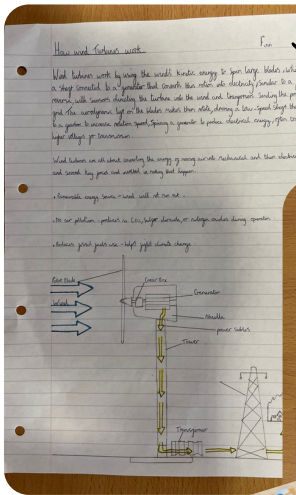 How wind Turbines work
Finn
Wind turbines work by using the wind's kinetic energy to spin large blades, which
a shaft connected to a generator that converts this motion into electricity, similar to a
reverse, with sensors directing the turbine into the wind and transformers sending the po
grid. The aerodynamic lift on the blades makes them rotate, driving a low-speed shaft th
to a gearbox to increase rotation speed, spinning a generator to produce electrical energy, often con
higher voltages for transmission.
Wind turbines are all about converting the energy of moving air into mechanical and then electric
and several key parts and work to making that happen.
• Renewable energy source - wind will not run out.
• No air pollution - produces no CO2, sulfur dioxide, or nitrogen oxides during operation
• Reduces fossil fuels use - helps fight climate change.
Rotor Blade
Gear Box
Generator
Wind
Nacelle
power cables
Tower
Transformer